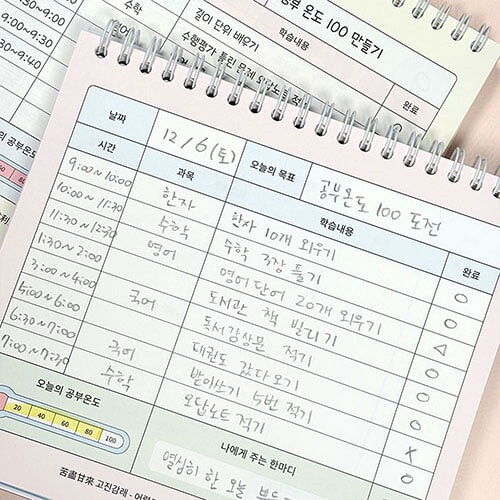 9:30~9:30
수학
공부 온도 100 만들기
학습내용
길이 단위 배우기
수행평가 틀린 문제 오답노트 적기
완료
날짜
12/6(토)
오늘의 목표
공부온도 100 도전
시간
과목
학습내용
완료
9:00~10:00 한자 한자 10개 외우기 ○
10:00~11:30 수학 수학 3장 풀기 ○
11:30~12:30 영어 영어단어 20개 외우기 △
1:30~2:00 도서관 책 빌리기 ○
3:00~4:00 국어 독서감상문 적기 ○
5:00~6:00 태권도 갔다오기 ○
6:30~7:00 국어 받아쓰기 5번 적기 X
7:00~7:30 수학 오답노트 적기 ○
오늘의 공부온도
20 40 60 80 100
나에게 주는 한마디
열심히 한 오늘
苦盡甘來 고진감래 - 어려